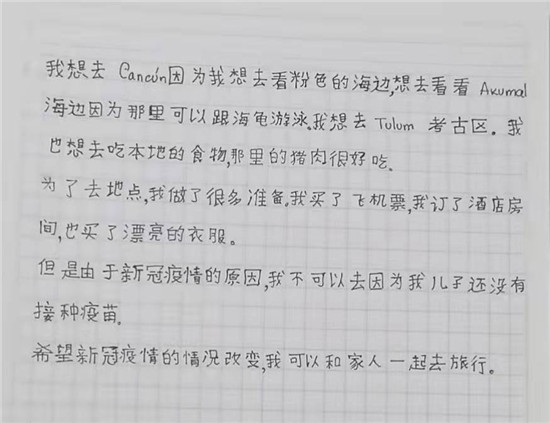 我想去 Cancún因为我想去看粉色的海边,想去看看 Akumal
海边因为那里可以跟海龟游泳.我想去 Tulum 考古区. 我
也想去吃本地的食物,那里的猪肉很好吃.
为了去地点,我做了很多准备.我买了飞机票,我订了酒店房
间,也买了漂亮的衣服。
但是由于新冠疫情的原因,我不可以去因为我儿子还没有
接种疫苗.
希望新冠疫情的情况改变,我可以和家人一起去旅行。